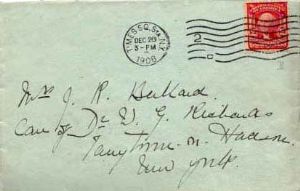 TIMES SQ. STA. N.Y.
DEC 26
3-PM
1908
2
D
Mrs J. R. Bullard
Care of Dr W. G.
Tarrytown-on-Hudson
New York